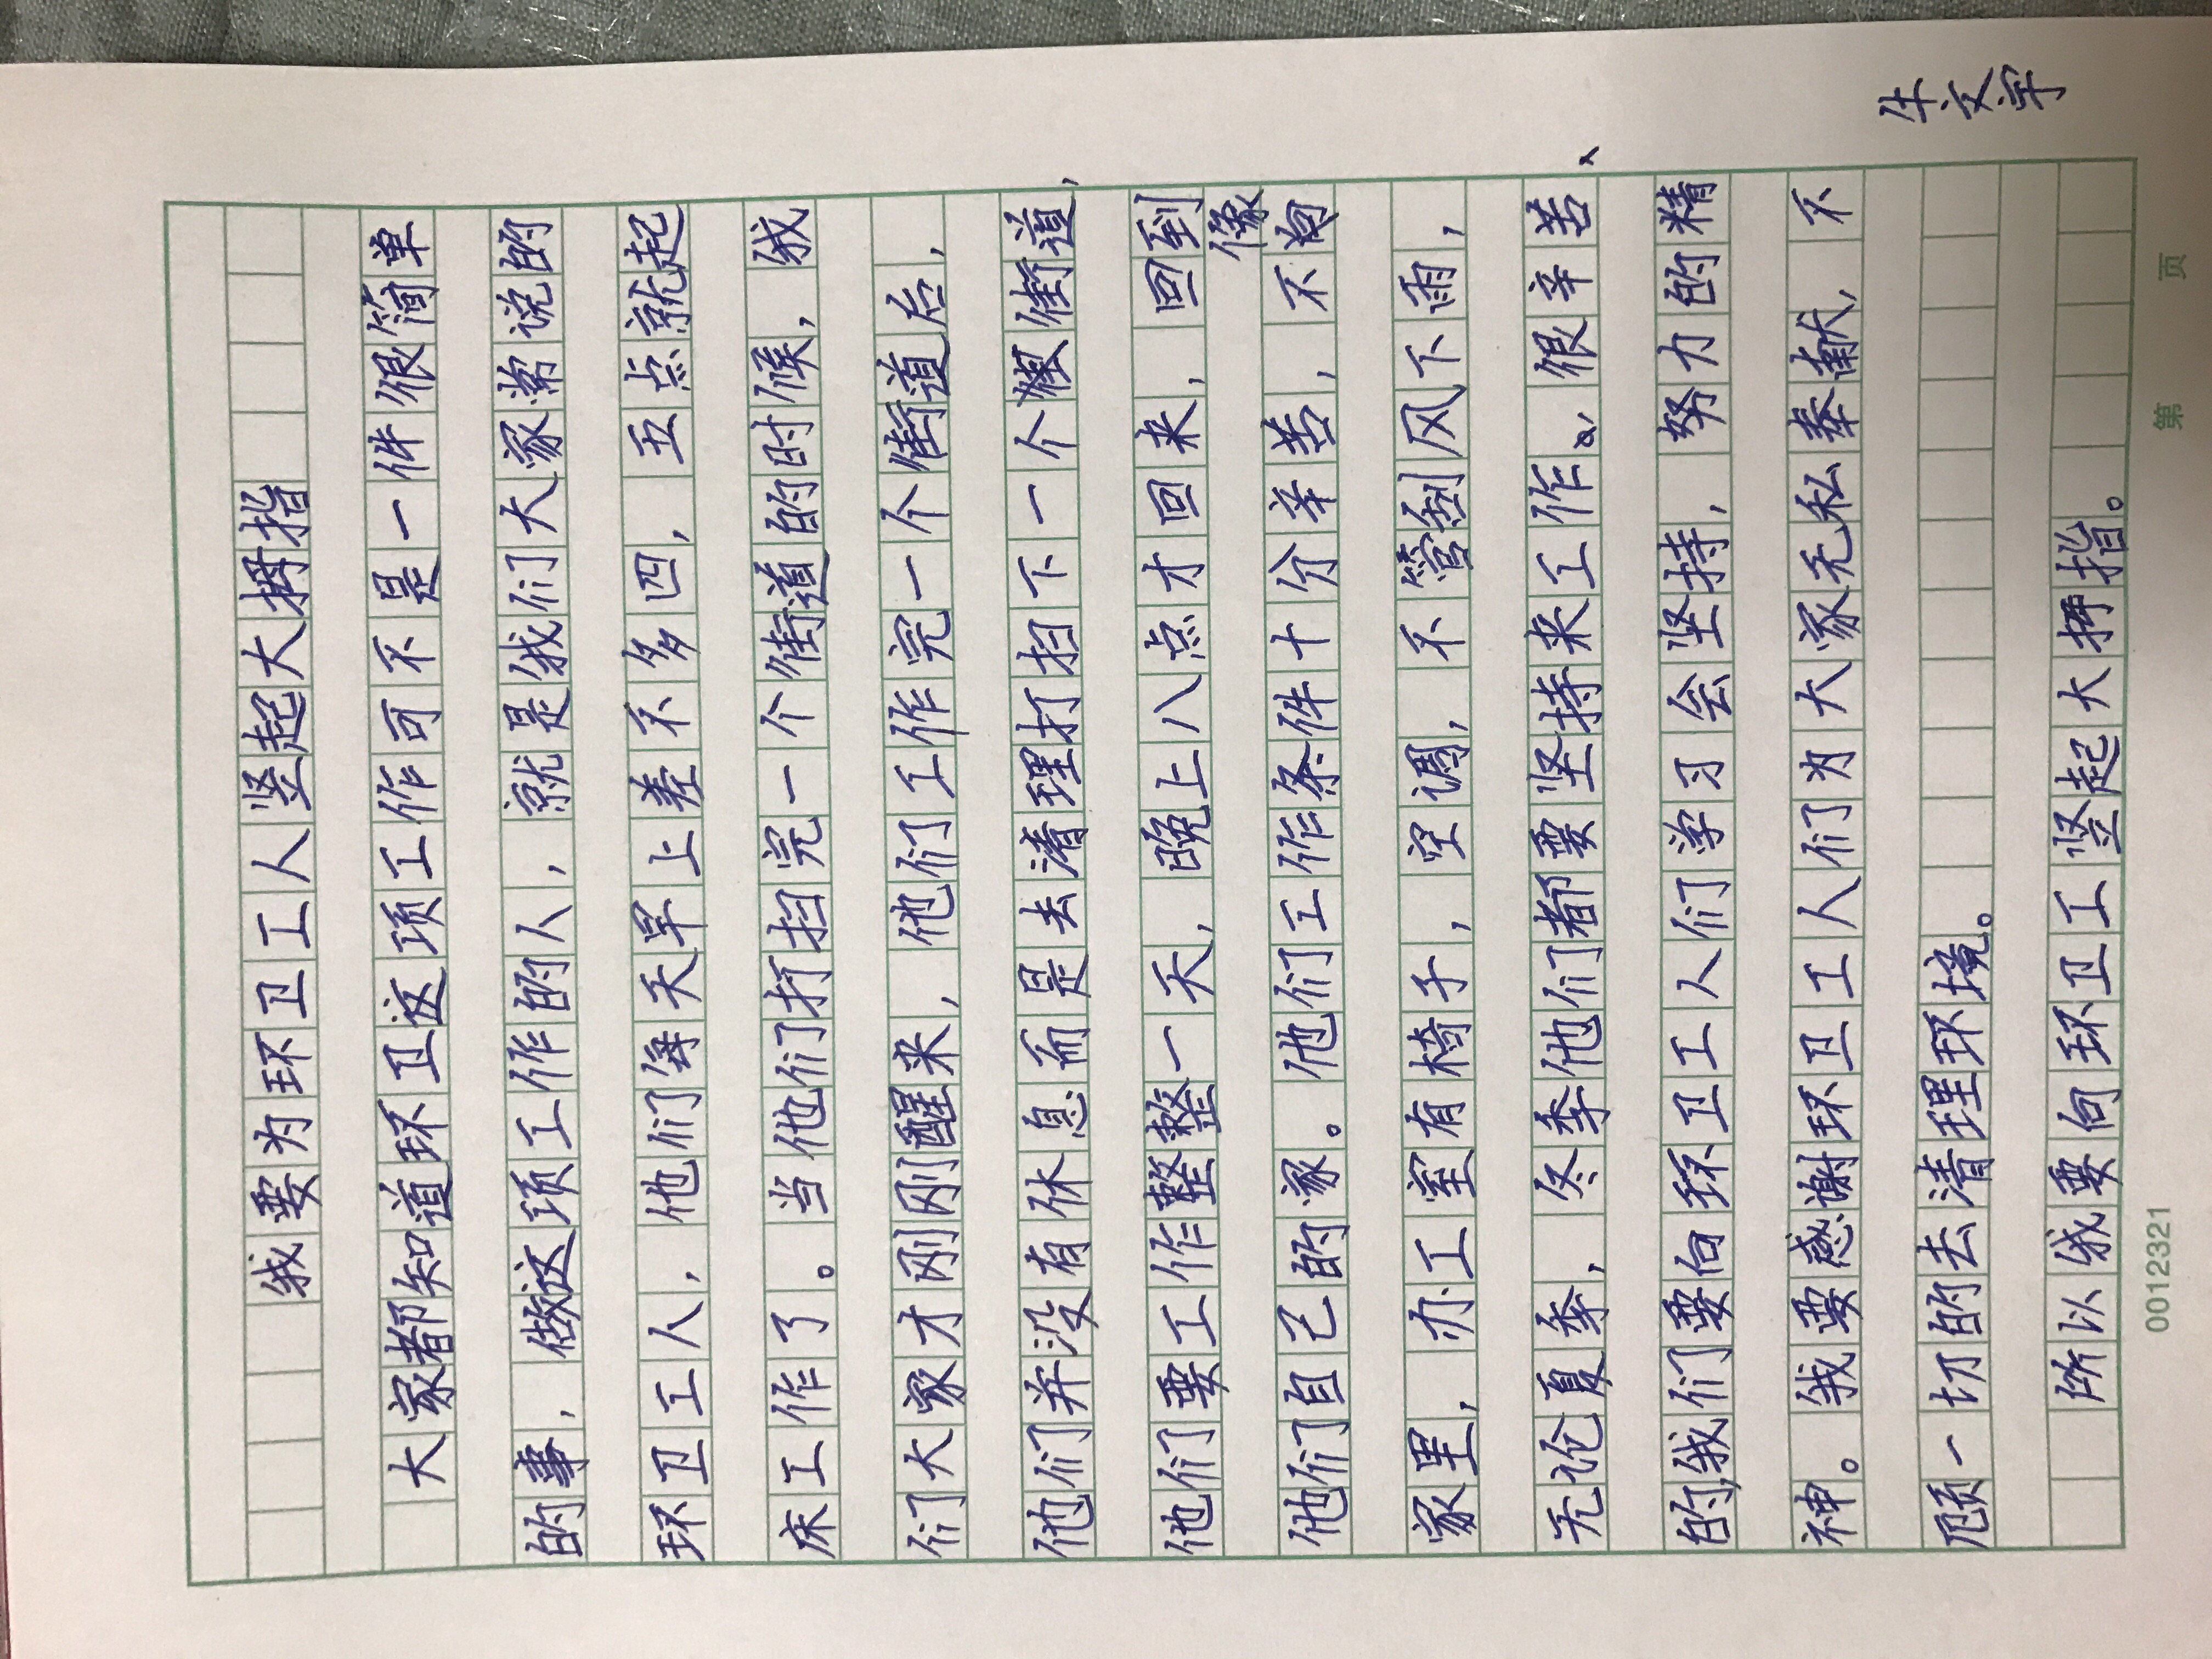 牛文宇
我要为环卫工人竖起大拇指
大家都知道环卫这项工作可不是一件很简单
的事，做这项工作的人，就是我们大家常说的
环卫工人，他们每天早上差不多四，五点就起
床工作了。当他们打扫完一个街道的时候，我
们大家才刚刚醒来，他们工作完一个街道后，
他们并没有休息而是去清理打扫下一个街道，
他们要工作整整一天，晚上八点才回来，回到
他们自己的家。他们工作条件十分辛苦，不像
家里，办工室有椅子，空调，不管刮风下雨，
无论夏季，冬季他们都要坚持来工作。很辛苦、
的，我们要向环卫工人们学习会坚持，努力的精
神。我要感谢环卫工人们为大家无私奉献，不
顾一切的去清理环境。
所以我要向环卫工竖起大拇指。
0012321 第 页